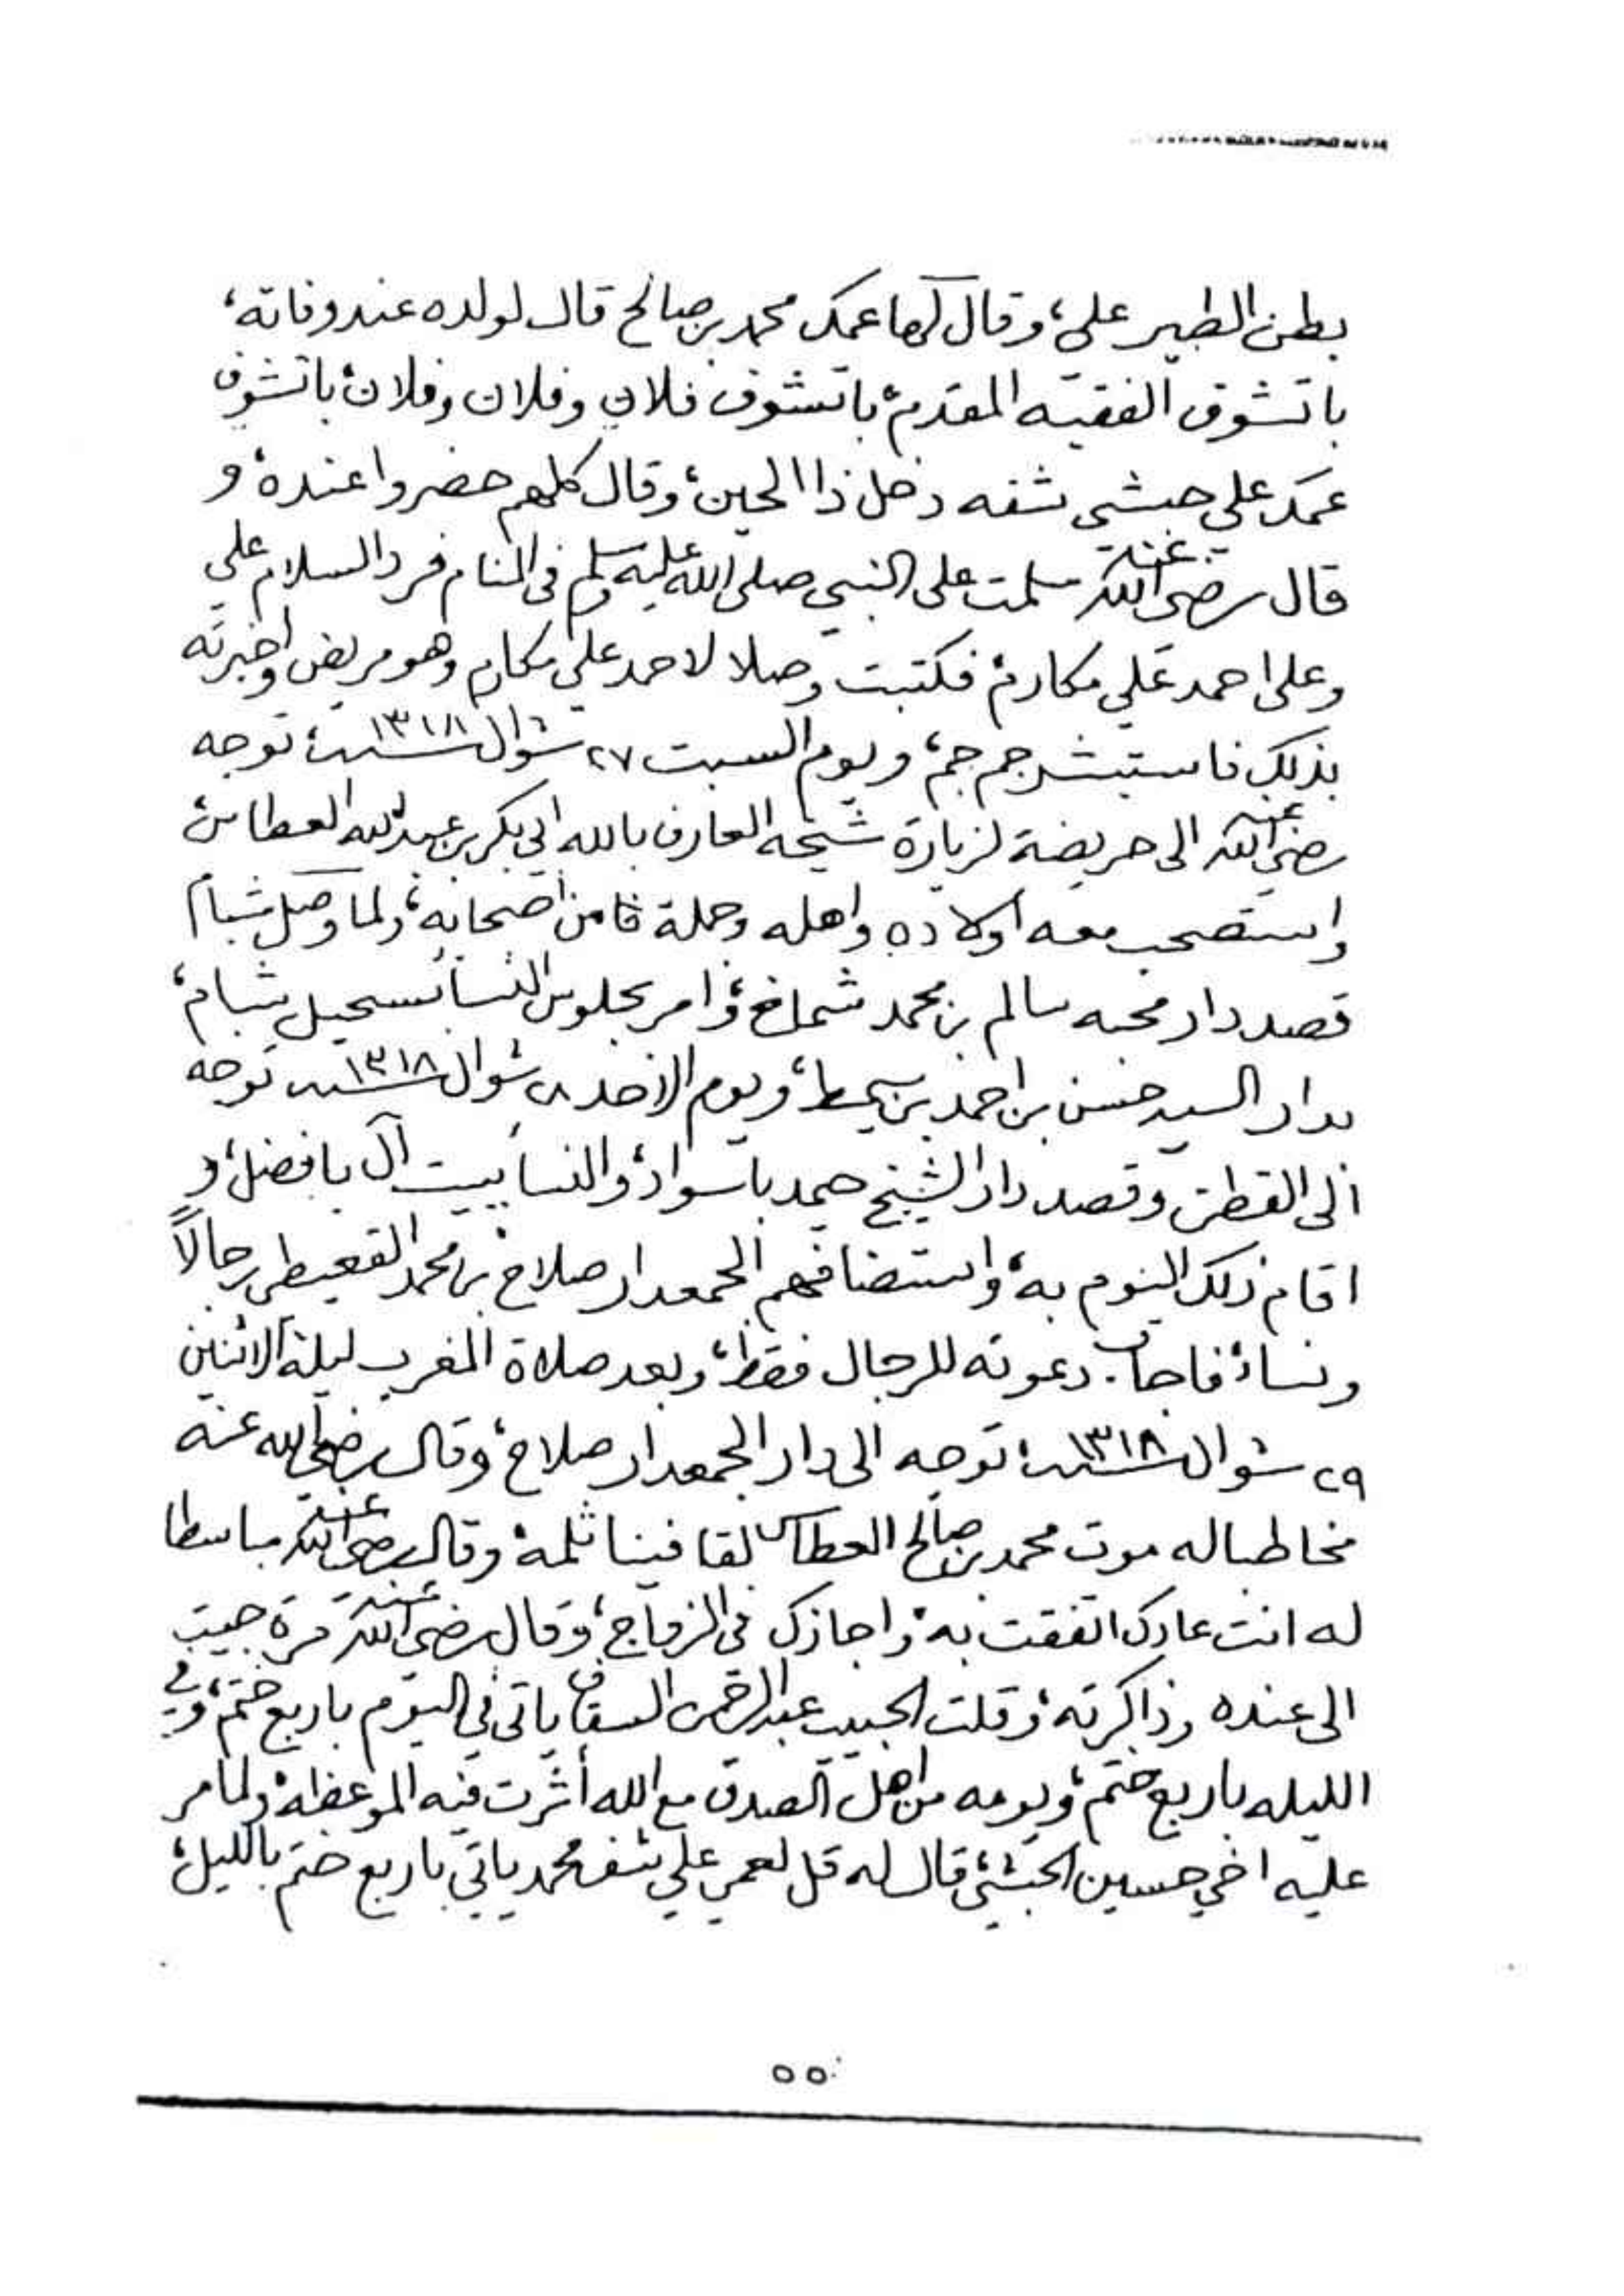 بطن الطير علي، وقال لها عمك محمد بن صالح قال لولده عند وفاته،
باتشوف الفقيه المقدم، باتشوف فلان وفلان وفلان، باتشوف
عمك علي حبشي شفه دخل ذا الحين، وقال كلهم حضروا عنده، و
قال رضي الله عنه سلمت على النبي صلى الله عليه وسلم في المنام فرد السلام علي
وعلى احمد علي مكارم، فكتبت وصلا لاحمد علي مكارم وهو مريض واخبرته
بذلك فاستبشر جم جم، ويوم السبت ٢٧ شوال سنة ١٣١٨، توجه
رضي الله عنه الى حريضة لزيارة شيخه العارف بالله ابي بكر بن عبدالله العطاس،
واستصحب معه اولاده واهله وجملة من أصحابه، ولما وصل شبام
قصد دار محبه سالم بن محمد شماخ، وامر بجلوس النسا بسحيل شبام،
بدار السيد حسن بن احمد بن سميط، ويوم الاحد ٢٨ شوال سنة ١٣١٨ توجه
الى القطن وقصد دار الشيخ حميد باسواد، والنسا ببيت آل بافضل، و
اقام ذلك اليوم به، واستضافهم الجمعدار صلاح بن محمد القعيطي رجالاً
ونساءً فاجاب دعوته للرجال فقط، وبعد صلاة المغرب ليلة الاثنين
٢٩ شوال سنة ١٣١٨، توجه الى دار الجمعدار صلاح، وقال رضي الله عنه
مخاطبا له موت محمد بن صالح العطاس لقا فينا ثلمة، وقال رضي الله عنه مباسطا
له انت عادك اتفقت به، واجازك في الزواج، وقال رضي الله عنه مرة جيت
الى عنده وذاكرته، وقلت الحبيب عبدالرحمن السقاف ياتي في اليوم باربع ختم، وفي
الليله باربع ختم، ويومه من اهل الصدق مع الله أثرت فيه الموعظه، ولما مر
عليه اخي حسين الحبشي، قال له قل لعمي علي شف محمد ياتي باربع ختم بالليل،
٥٥